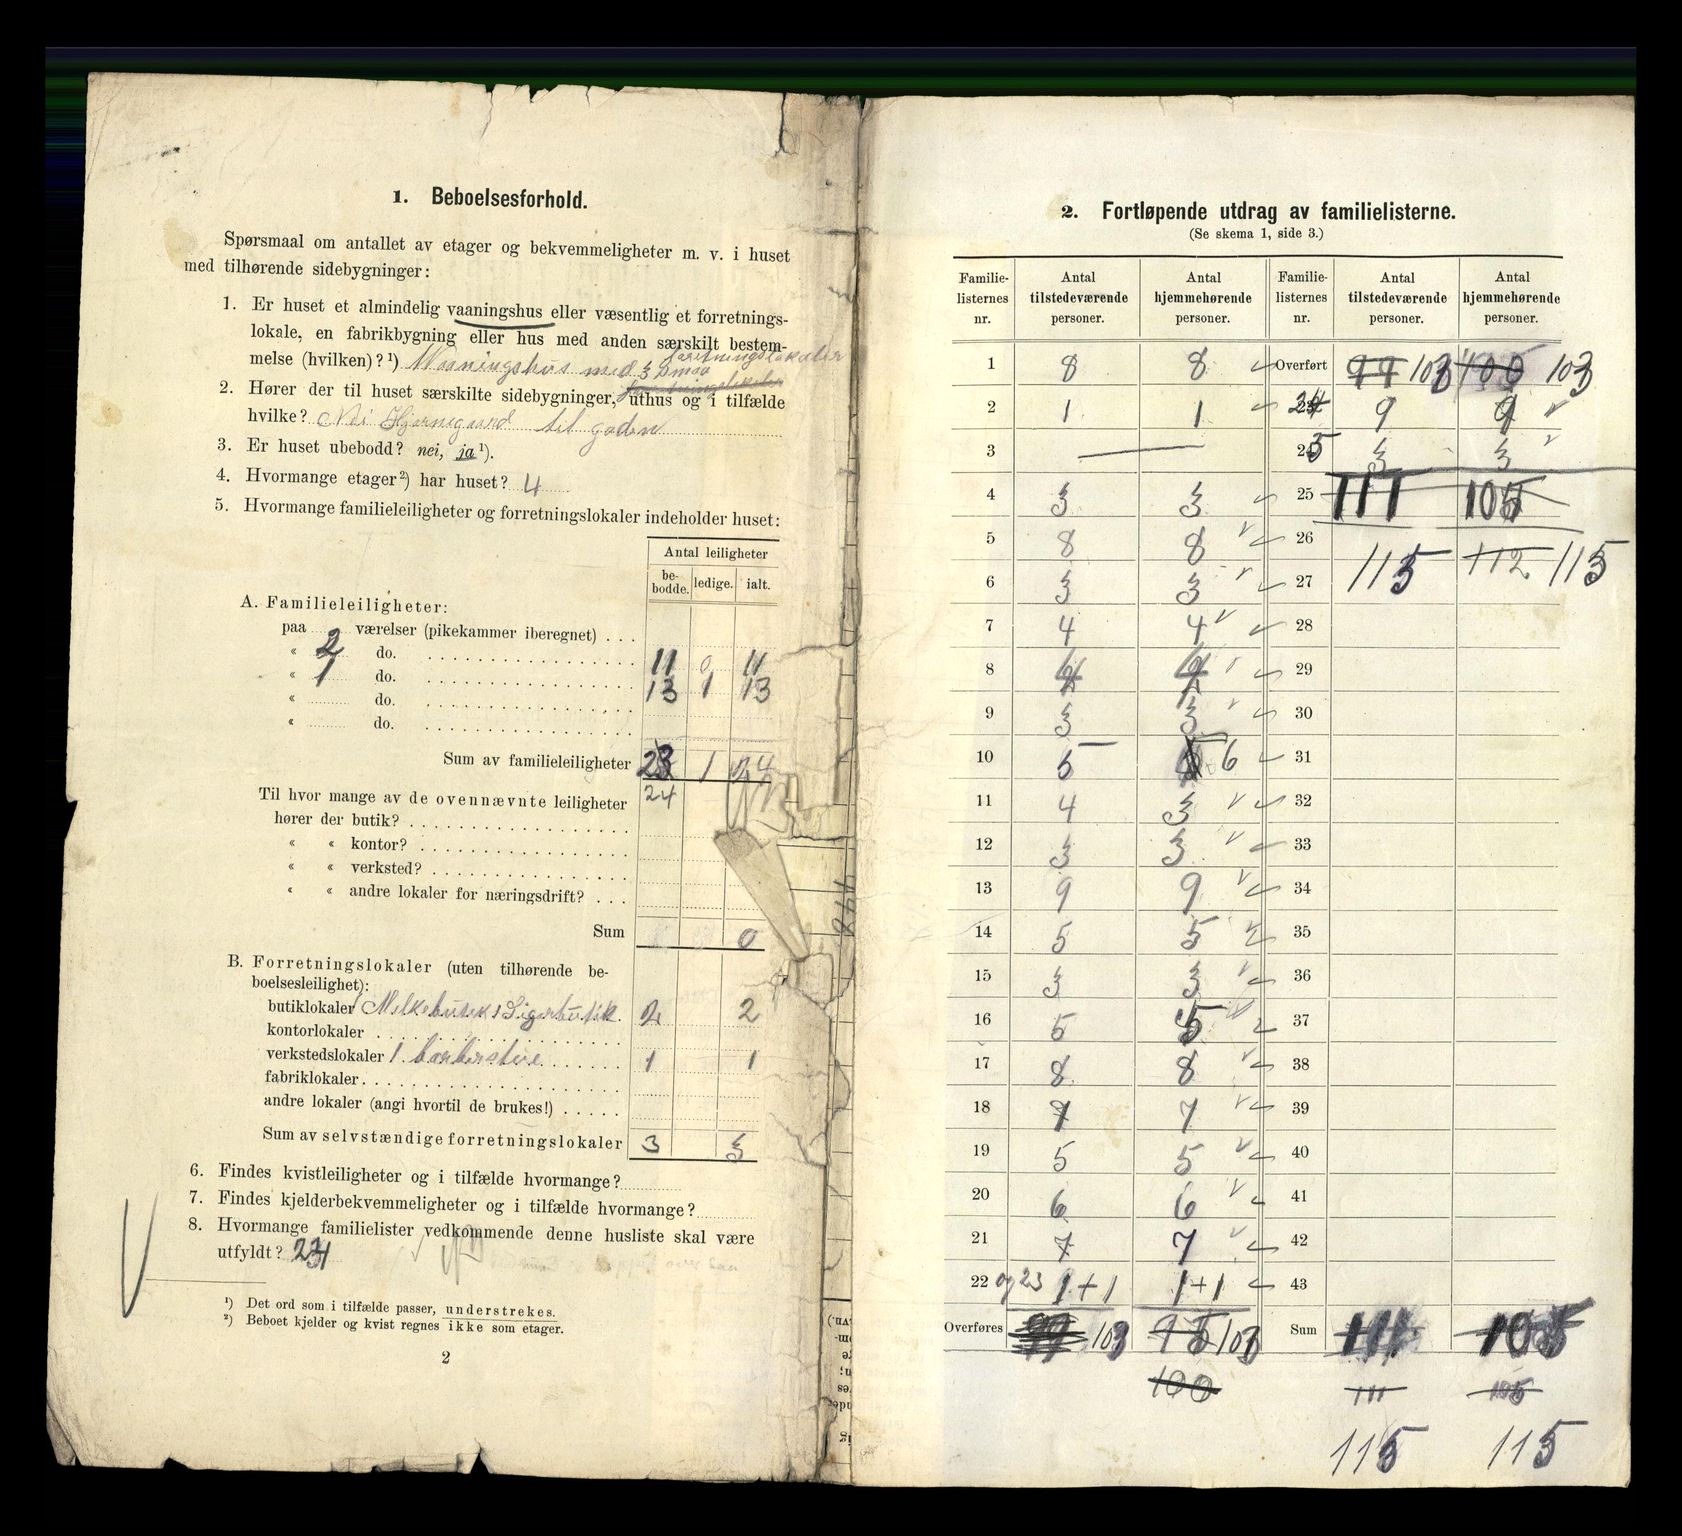 1. Beboelsesforhold.
Spørsmaal om antallet av etager og bekvemmeligheter m. v. i huset
med tilhørende sidebygninger:
1. Er huset et almindelig vaaningshus eller væsentlig et forretnings-
lokale, en fabrikbygning eller hus med anden særskilt bestem-
melse (hvilken)? ¹) Vaaningshus med 3 smaa forretningslokaler
2. Hører der til huset særskilte sidebygninger, uthus og i tilfælde
hvilke? Nei Hjørnegaard til gaden
3. Er huset ubebodd? nei, ja ¹).
4. Hvormange etager ²) har huset? 4
5. Hvormange familieleiligheter og forretningslokaler indeholder huset:
Antal leiligheter
be-bodde. ledige. ialt.
A. Familieleiligheter:
paa værelser (pikekammer iberegnet) . . .
« 2 do. 11 0 11
« 1 do. 13 1 13
« do.
« do.
Sum av familieleiligheter 23 1 24
Til hvor mange av de ovennævnte leiligheter 24
hører der butik?
« « kontor?
« « verksted?
« « andre lokaler for næringsdrift? . . .
Sum 0
B. Forretningslokaler (uten tilhørende be-
boelsesleilighet):
butiklokaler 1 Melkebutik 1 Sigarbutik. 2 2
kontorlokaler
verkstedslokaler 1 barberstue 1 1
fabriklokaler
andre lokaler (angi hvortil de brukes!) . . . . .
Sum av selvstændige forretningslokaler 3 3
6. Findes kvistleiligheter og i tilfælde hvormange?
7. Findes kjelderbekvemmeligheter og i tilfælde hvormange?
8. Hvormange familielister vedkommende denne husliste skal være
utfyldt? 24
¹) Det ord som i tilfælde passer, understrekes.
²) Beboet kjelder og kvist regnes ikke som etager.
2
448
2. Fortløpende utdrag av familielisterne.
(Se skema 1, side 3.)
Familie-listernes nr. Antal tilstedeværende personer. Antal hjemmehørende personer. Familie-listernes nr. Antal tilstedeværende personer. Antal hjemmehørende personer.
1 8 8 Overført 103 100 103
2 1 1 24 9 9
3 — 25 3 3
4 3 3 25 111 105
5 8 8 26
6 3 3 27 115 112 115
7 4 4 28
8 4 4 29
9 3 3 30
10 5 6 31
11 4 3 32
12 3 3 33
13 9 9 34
14 5 5 35
15 3 3 36
16 5 5 37
17 8 8 38
18 7 7 39
19 5 5 40
20 6 6 41
21 7 7 42
22 og 23 1+1 1+1 43
Overføres 103 95 103 Sum 111 105
100 111 105
115 115